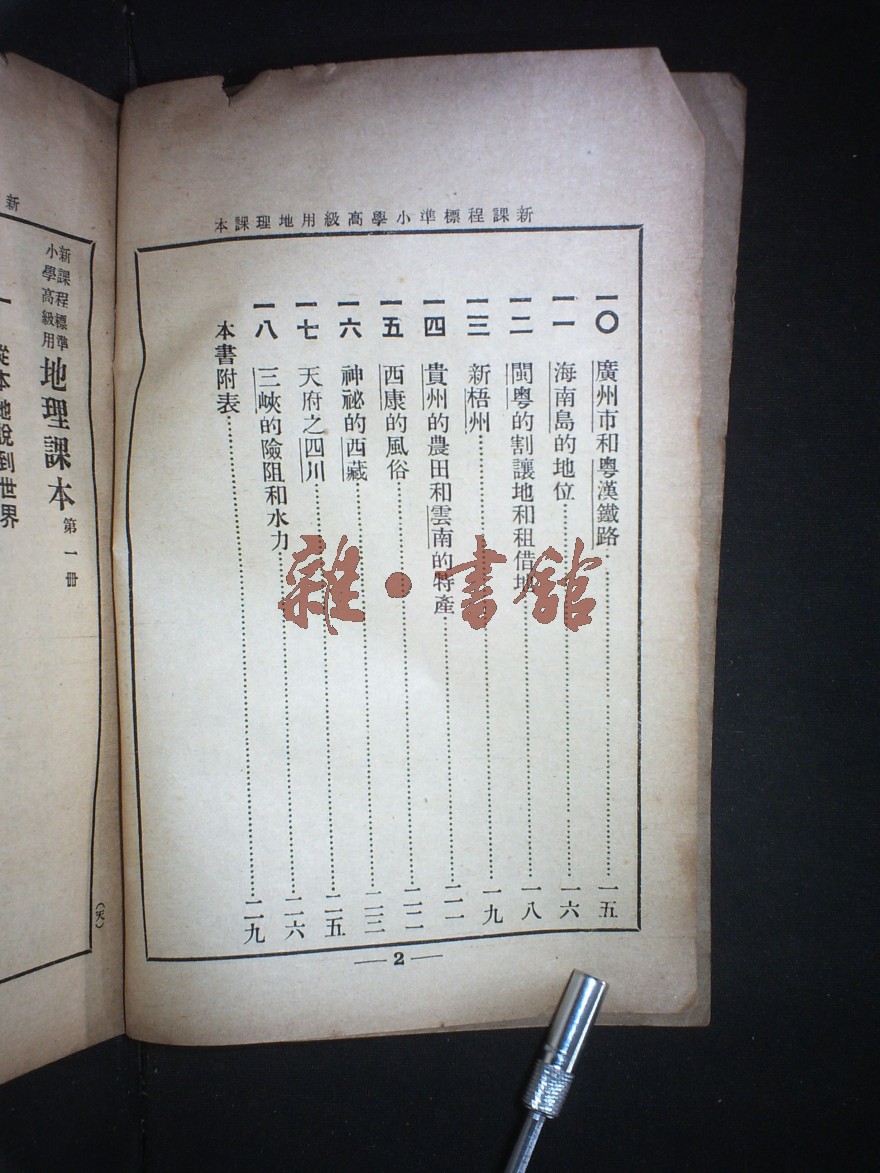 新課程標準小學高級用地理課本
一〇 廣州市和粵漢鐵路……一五
一一 海南島的地位……一六
一二 閩粵的割讓地和租借地……一八
一三 新梧州……一九
一四 貴州的農田和雲南的特產……二一
一五 西康的風俗……二二
一六 神祕的西藏……二三
一七 天府之四川……二五
一八 三峽的險阻和水力……二六
本書附表……二九
2
雜·書館
新
新課程標準
小學高級用
地理課本 第一冊
一 從本地說到世界
(天)